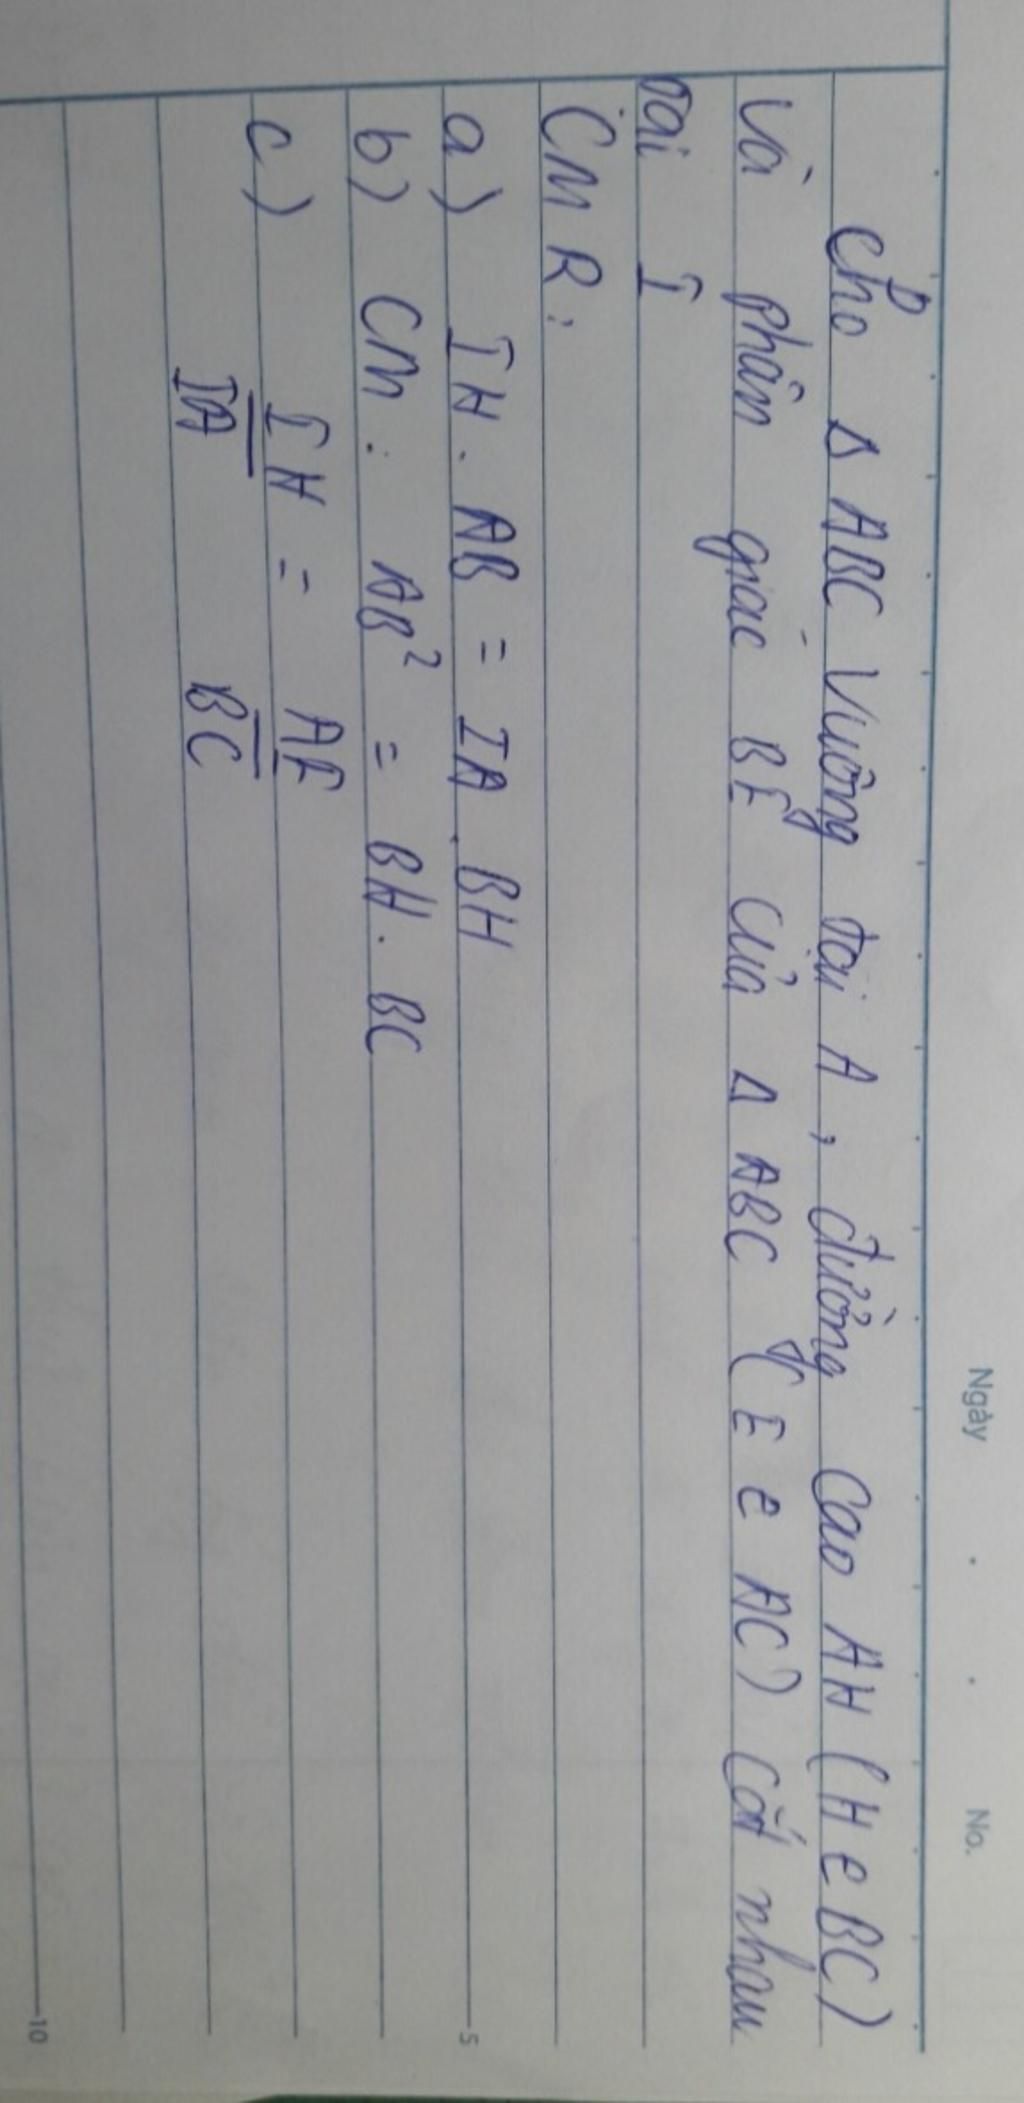 Ngày No.
Cho Δ ABC Vuông tại A, đường Cao AH (H e BC)
Và phân giác BE của Δ ABC (E e AC) Cắt nhau
tại I
CMR:
a) IH. AB = IA. BH
5
b) CM: AB² = BH. BC
c) IH = AE
IA BC
10